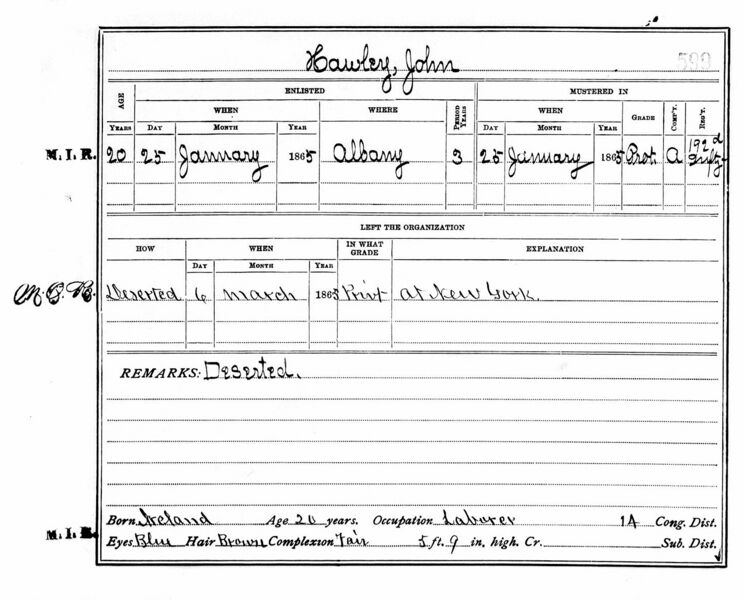 Hawley, John 599
ENLISTED MUSTERED IN
AGE WHEN WHERE PERIOD YEARS WHEN GRADE COMP'Y. REG'T.
YEARS DAY MONTH YEAR DAY MONTH YEAR
M.I.R. 20 25 January 1865 Albany 3 25 January 1865 Prvt. A 192d Infty
LEFT THE ORGANIZATION
HOW WHEN IN WHAT GRADE EXPLANATION
DAY MONTH YEAR
Deserted 6 March 1865 Privt at New York.
REMARKS: Deserted.
Born Ireland Age 20 years. Occupation Laborer 14 Cong. Dist.
M.I.R. Eyes Blue Hair Brown Complexion Fair 5 ft. 9 in. high. Cr. Sub. Dist.